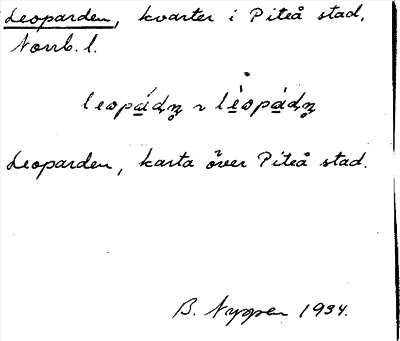 Leoparden, kvarter i Piteå stad,
Norrb. l.
leopádn̥ ~ lèopádn̥
Leoparden, karta över Piteå stad.
B. Nygren 1934.